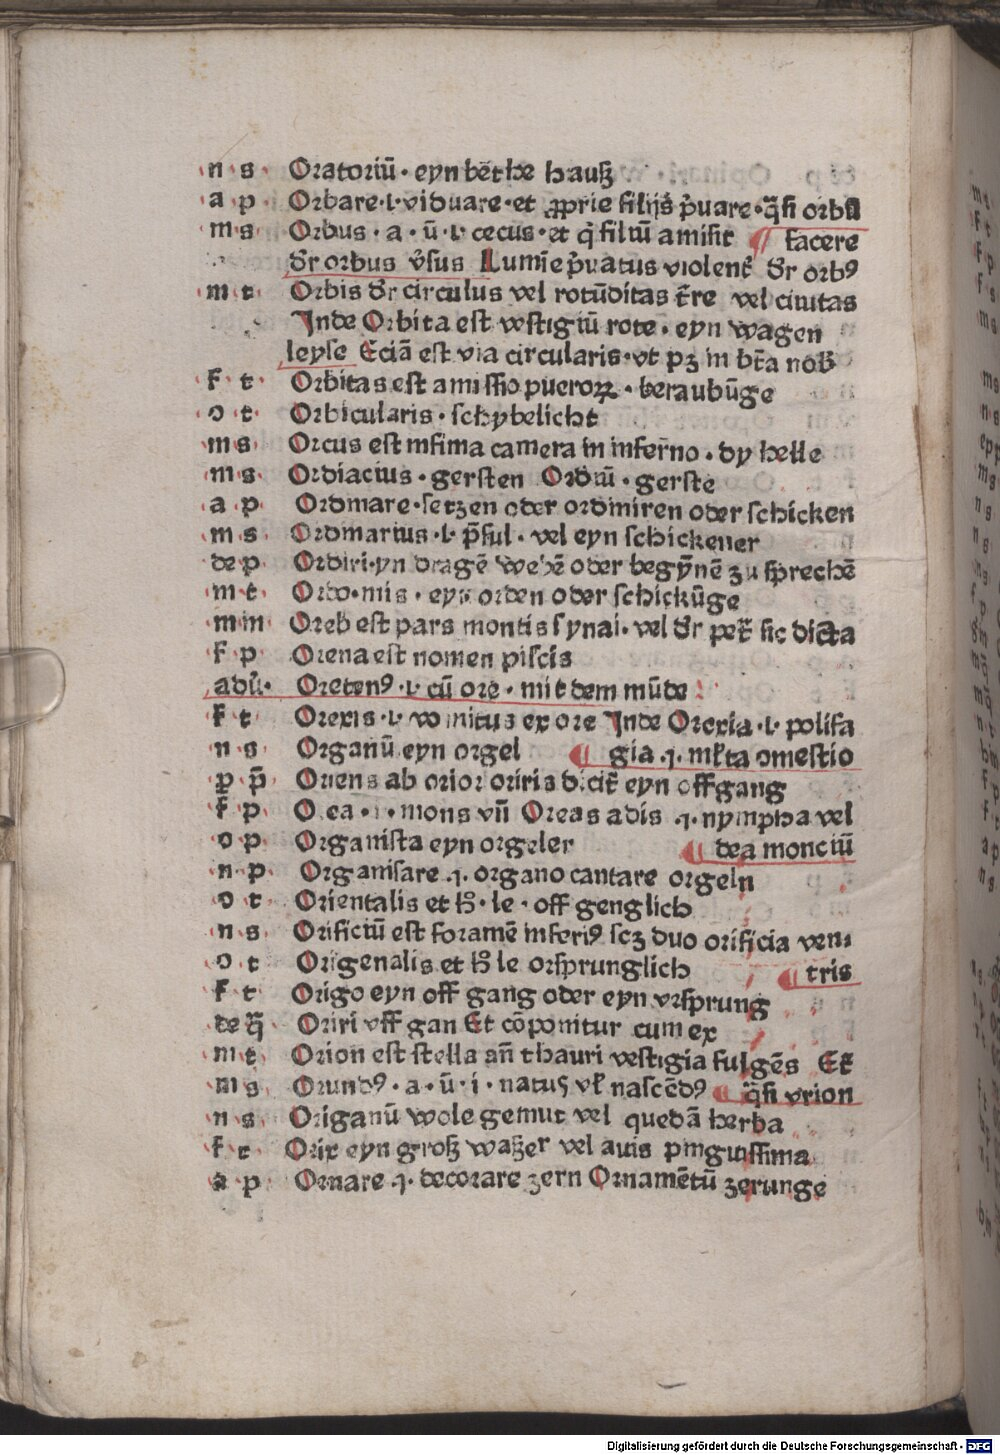 n s Oratoriū · eyn bēthe hauß
a p Orbare · l · viduare · et ꝓprie filijs p̄uare · q̄ſi orbū
m s Orbus · a · ū · l · cecus · et q̄ filiū amiſit ¶ facere
dr̄ orbus v̄ſus Lumīe p̄uatus violent̄ dr̄ orbꝰ
m t Orbis dr̄ circulus vel rotūditas t̄re vel ciuitas
Inde Orbita eſt veſtigiū rote · eyn wagen
leyſe Eciā eſt via circularis · vt pꝫ in br̄a nob̄
f t Orbitas eſt amiſſio pueroꝝ · beraubūge
o t Orbicularis · ſchybelicht
m s Orcus eſt infima camera in infer̄no · dy helle
m s Ordiacius · gerſten Ordiū · gerſte
a p Ordinare · ſetzen oder ordiniren oder ſchicken
m s Ordinarius · l · p̄ſul · vel eyn ſchickener
de p Ordiri · yn dragē webē oder begȳnē zu ſprechē
m t Ordo · nis · eyn orden oder ſchickūge
m in Oreb eſt pars montis ſynai · vel dr̄ pet̄ ſic dicta
f p Orena eſt nomen piſcis
adū · Oretenꝰ · l · cū ore · mit dem mūde
f t Orexis · l · vomitus ex ore Inde Orexia · l · poliſa
n s Organū eyn orgel ¶ gia .ꝗ. ml̄ta omeſtio
p̱ p̄ Oriens ab orior oriris dicit̄ eyn offgang
f p Orea · i · mons vn̄ Oreas adis .ꝗ. nympha vel
o p Organiſta eyn orgeler ¶ dea monciū
n p Organiſare .ꝗ. organo cantare orgeln
o t Orientalis et h̄ · le · off genglich
n s Orificiū eſt foramē inferiꝰ ſcꝫ duo orificia ven
o t Origenalis et h̄ le orſprunglich ¶ tris
f t Origo eyn off gang oder eyn vrſprung
de q̄ Oriri vff gan Et cōponitur cum ex
m t Orion eſt ſtella an̄ thauri veſtigia fulgēs Et
m s Orundꝰ · a · ū · i · natus vl̄ naſcēdꝰ ¶ q̄ſi vrion
n s Origanū wole gemut vel quedā herba
f t Orix eyn groß waßer vel auis pinguiſſima
a p Ornare .ꝗ. decorare zern Ornamētū zerunge
Digitalisierung gefördert durch die Deutsche Forschungsgemeinschaft - DFG